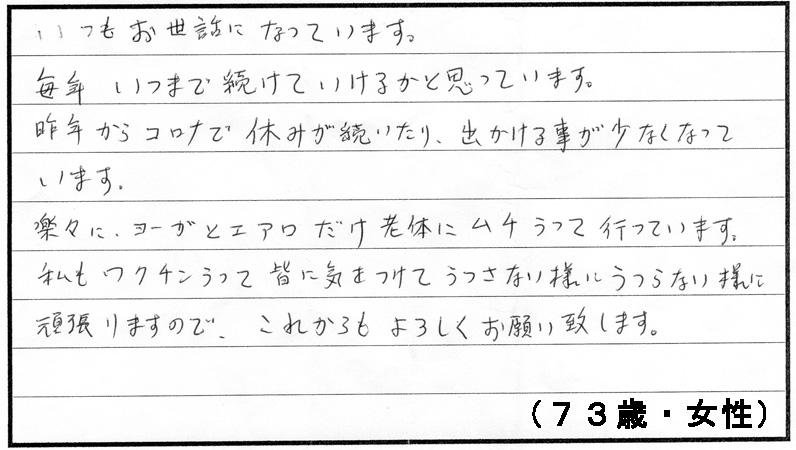 いつもお世話になっています。
毎年 いつまで続けていけるかと思っています。
昨年からコロナで 休みが続いたり、出かける事が少なくなって
います。
楽々に、ヨーガとエアロだけ 老体にムチうって 行っています。
私もワクチンうって 皆に気をつけて うつさない様に うつらない様に
頑張りますので、これからも よろしくお願い致します。
（７３歳・女性）